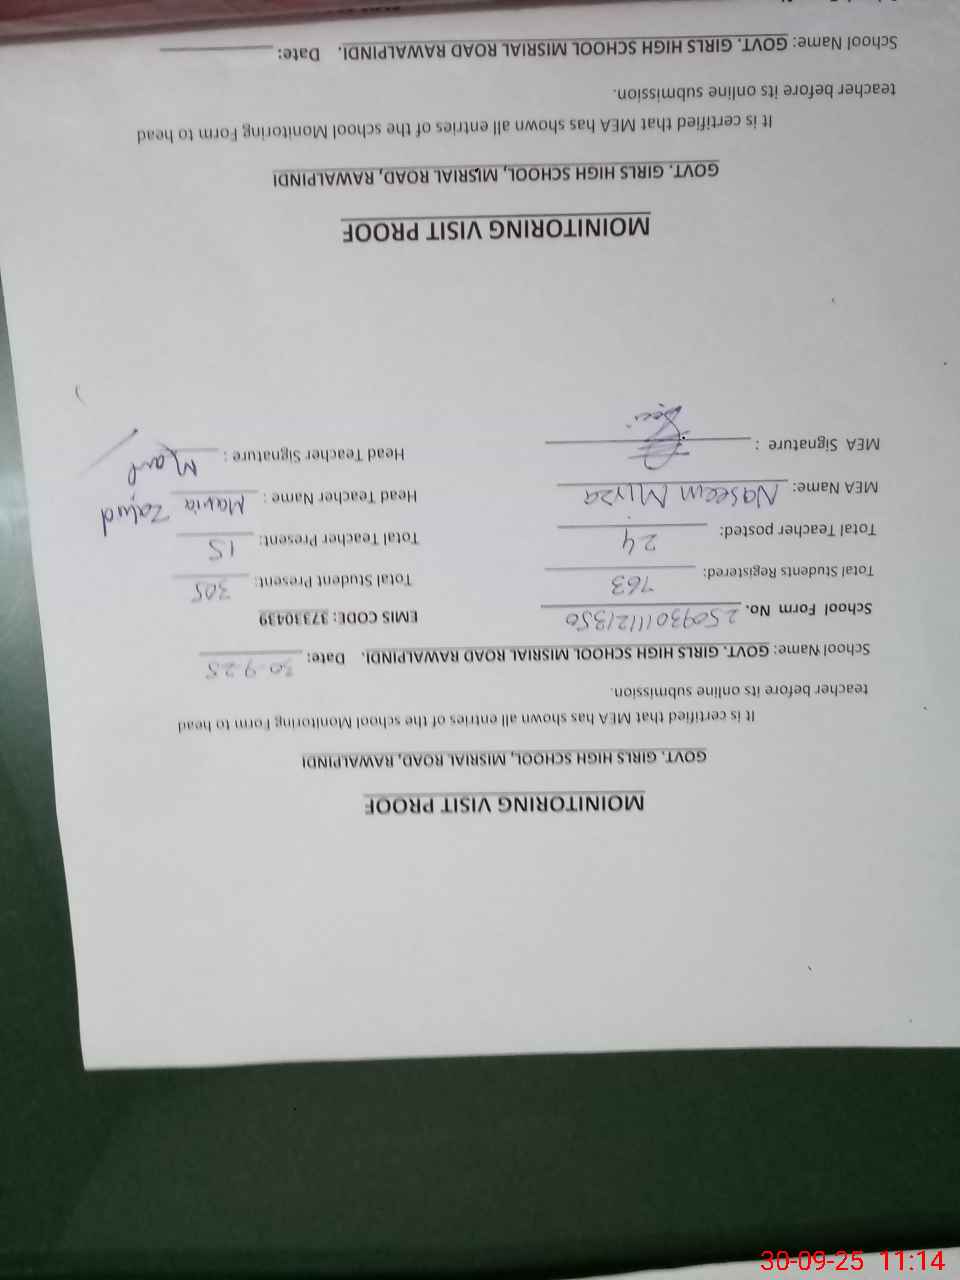 MOINITORING VISIT PROOF
GOVT. GIRLS HIGH SCHOOL, MISRIAL ROAD, RAWALPINDI
It is certified that MEA has shown all entries of the school Monitoring Form to head
teacher before its online submission.
School Name: GOVT. GIRLS HIGH SCHOOL MISRIAL ROAD RAWALPINDI. Date: 30-9-25
School Form No. 25093011121350 EMIS CODE: 37330439
Total Students Registered: 763 Total Student Present: 305
Total Teacher posted: 24 Total Teacher Present: 15
MEA Name: Naseem Mirza Head Teacher Name: Maria
MEA Signature : Head Teacher Signature :
MOINITORING VISIT PROOF
GOVT. GIRLS HIGH SCHOOL, MISRIAL ROAD, RAWALPINDI
It is certified that MEA has shown all entries of the school Monitoring Form to head
teacher before its online submission.
School Name: GOVT. GIRLS HIGH SCHOOL MISRIAL ROAD RAWALPINDI. Date:
30-09-25 11:14